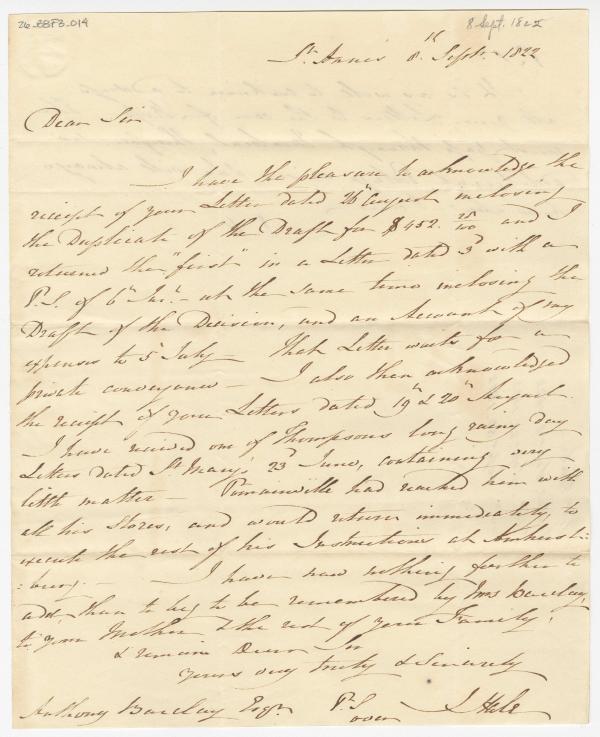 26-BBF3-014
8 Sept. 1822
St. Annes 8th Septr. 1822
Dear Sir
I have the pleasure to acknowledge the
receipt of your Letter dated 26th August inclosing
the Duplicate of the Draft for $452. 25/100 and I
returned the "first" in a Letter dated 3d with a
P.S. of 6th Inst. - at the same time inclosing the
Draft of the Decision, and an Account of my
expenses to 5 July - That Letter waits for a
private conveyance - I also then acknowledged
the receipt of your Letters dated 19th & 20th August.
I have received one of Thompsons long rainy day
Letters dated St Mary's 23d June, containing very
little matter - Pomainville had reached him with
all his Stores, and would return immediately, to
execute the rest of his Instructions at Amherst:
:burg. - I have now nothing further to
add, than to beg to be remembered by Mrs Barclay,
to your Mother & the rest of your Family,
& remain Dear Sir
Yours very truly & Sincerely
Anthony Barclay Esqr. P.S. J Hale
over